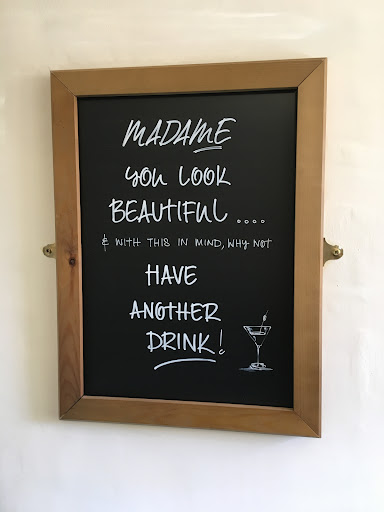 MADAME
YOU LOOK
BEAUTIFUL ....
& WITH THIS IN MIND, WHY NOT
HAVE
ANOTHER
DRINK!